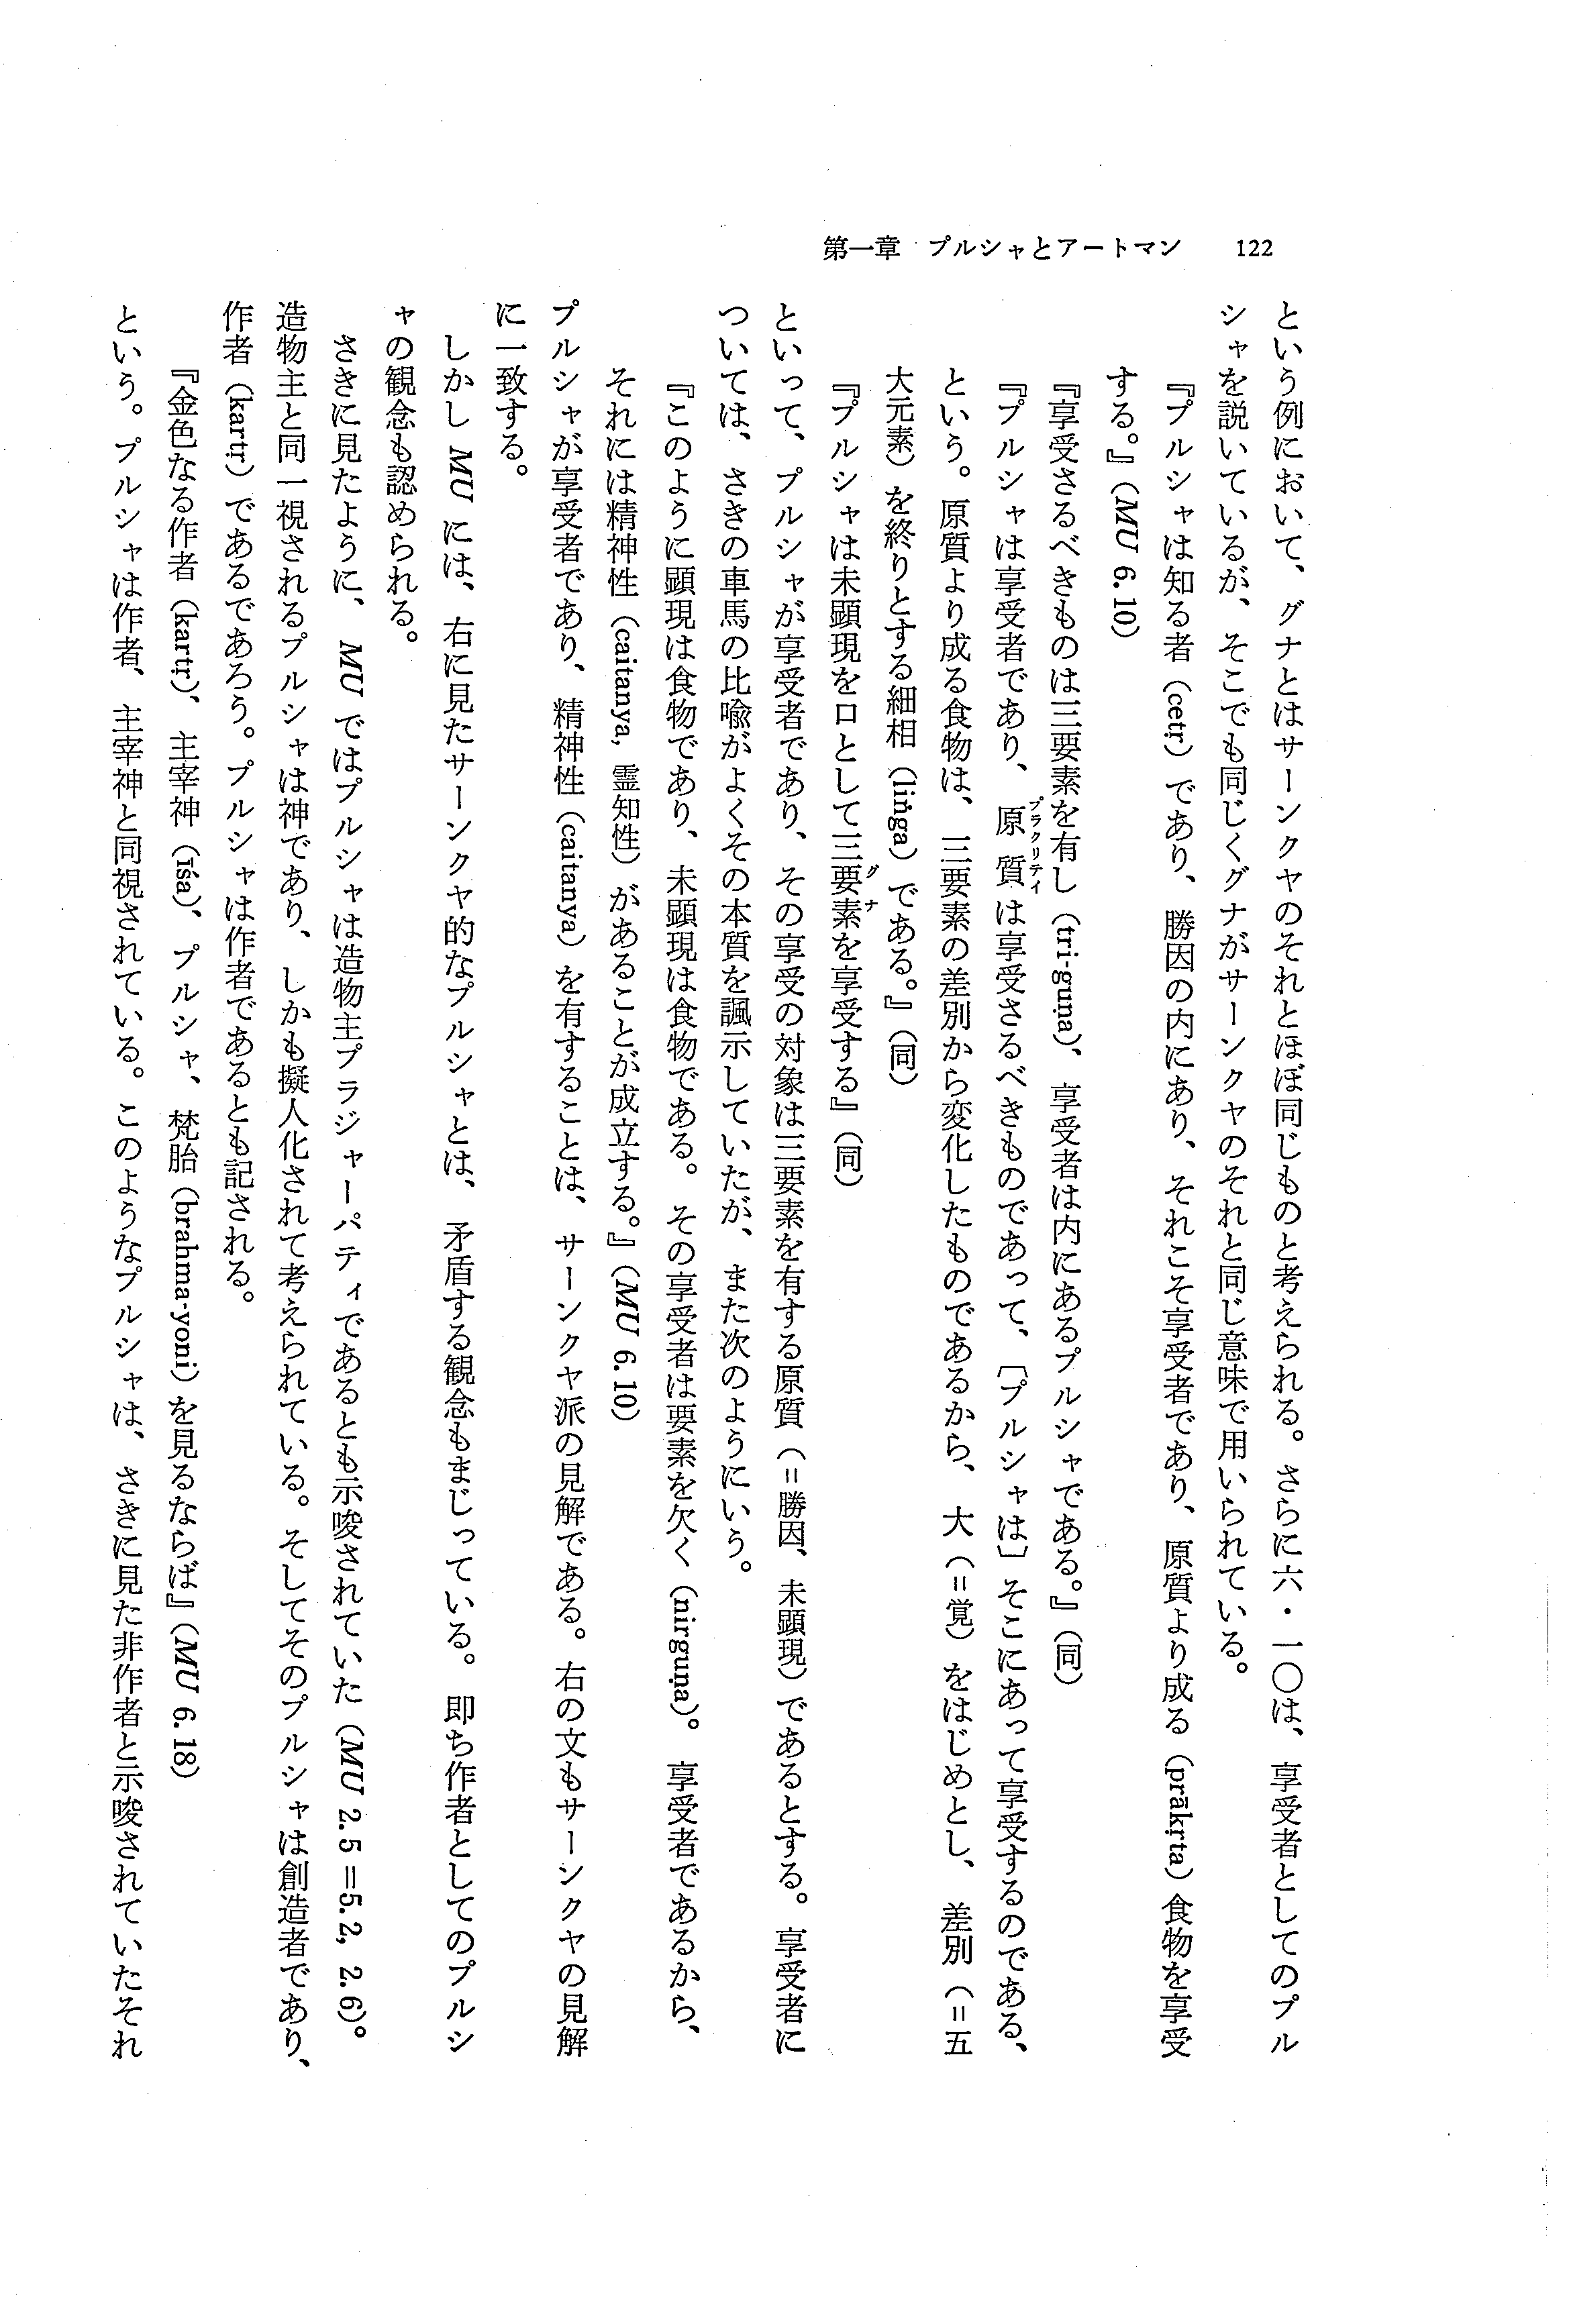 第一章　プルシャとアートマン　122
という例において、グナとはサーンクヤのそれとほぼ同じものと考えられる。さらに六・一〇は、享受者としてのプル
シャを説いているが、そこでも同じくグナがサーンクヤのそれと同じ意味で用いられている。
『プルシャは知る者（cetṛ）であり、勝因の内にあり、それこそ享受者であり、原質より成る（prākṛta）食物を享受
する。』（MU 6.10）
『享受さるべきものは三要素を有し（tri-guṇa）、享受者は内にあるプルシャである。』（同）
『プルシャは享受者であり、原質は享受さるべきものであって、〔プルシャは〕そこにあって享受するのである、
プラクリティ
という。原質より成る食物は、三要素の差別から変化したものであるから、大（＝覚）をはじめとし、差別（＝五
大元素）を終りとする細相（liṅga）である。』（同）
『プルシャは未顕現を口として三要素を享受する』（同）
グナ
といって、プルシャが享受者であり、その享受の対象は三要素を有する原質（＝勝因、未顕現）であるとする。享受者に
ついては、さきの車馬の比喩がよくその本質を諷示していたが、また次のようにいう。
『このように顕現は食物であり、未顕現は食物である。その享受者は要素を欠く（nirguṇa）。享受者であるから、
それには精神性（caitanya, 霊知性）があることが成立する。』（MU 6.10）
プルシャが享受者であり、精神性（caitanya）を有することは、サーンクヤ派の見解である。右の文もサーンクヤの見解
に一致する。
しかし MU には、右に見たサーンクヤ的なプルシャとは、矛盾する観念もまじっている。即ち作者としてのプルシ
ャの観念も認められる。
さきに見たように、MU ではプルシャは造物主プラジャーパティであるとも示唆されていた（MU 2.5＝5.2, 2.6）。
造物主と同一視されるプルシャは神であり、しかも擬人化されて考えられている。そしてそのプルシャは創造者であり、
作者（kartṛ）であるであろう。プルシャは作者であるとも記される。
『金色なる作者（kartṛ）、主宰神（īśa）、プルシャ、梵胎（brahma-yoni）を見るならば』（MU 6.18）
という。プルシャは作者、主宰神と同視されている。このようなプルシャは、さきに見た非作者と示唆されていたそれ